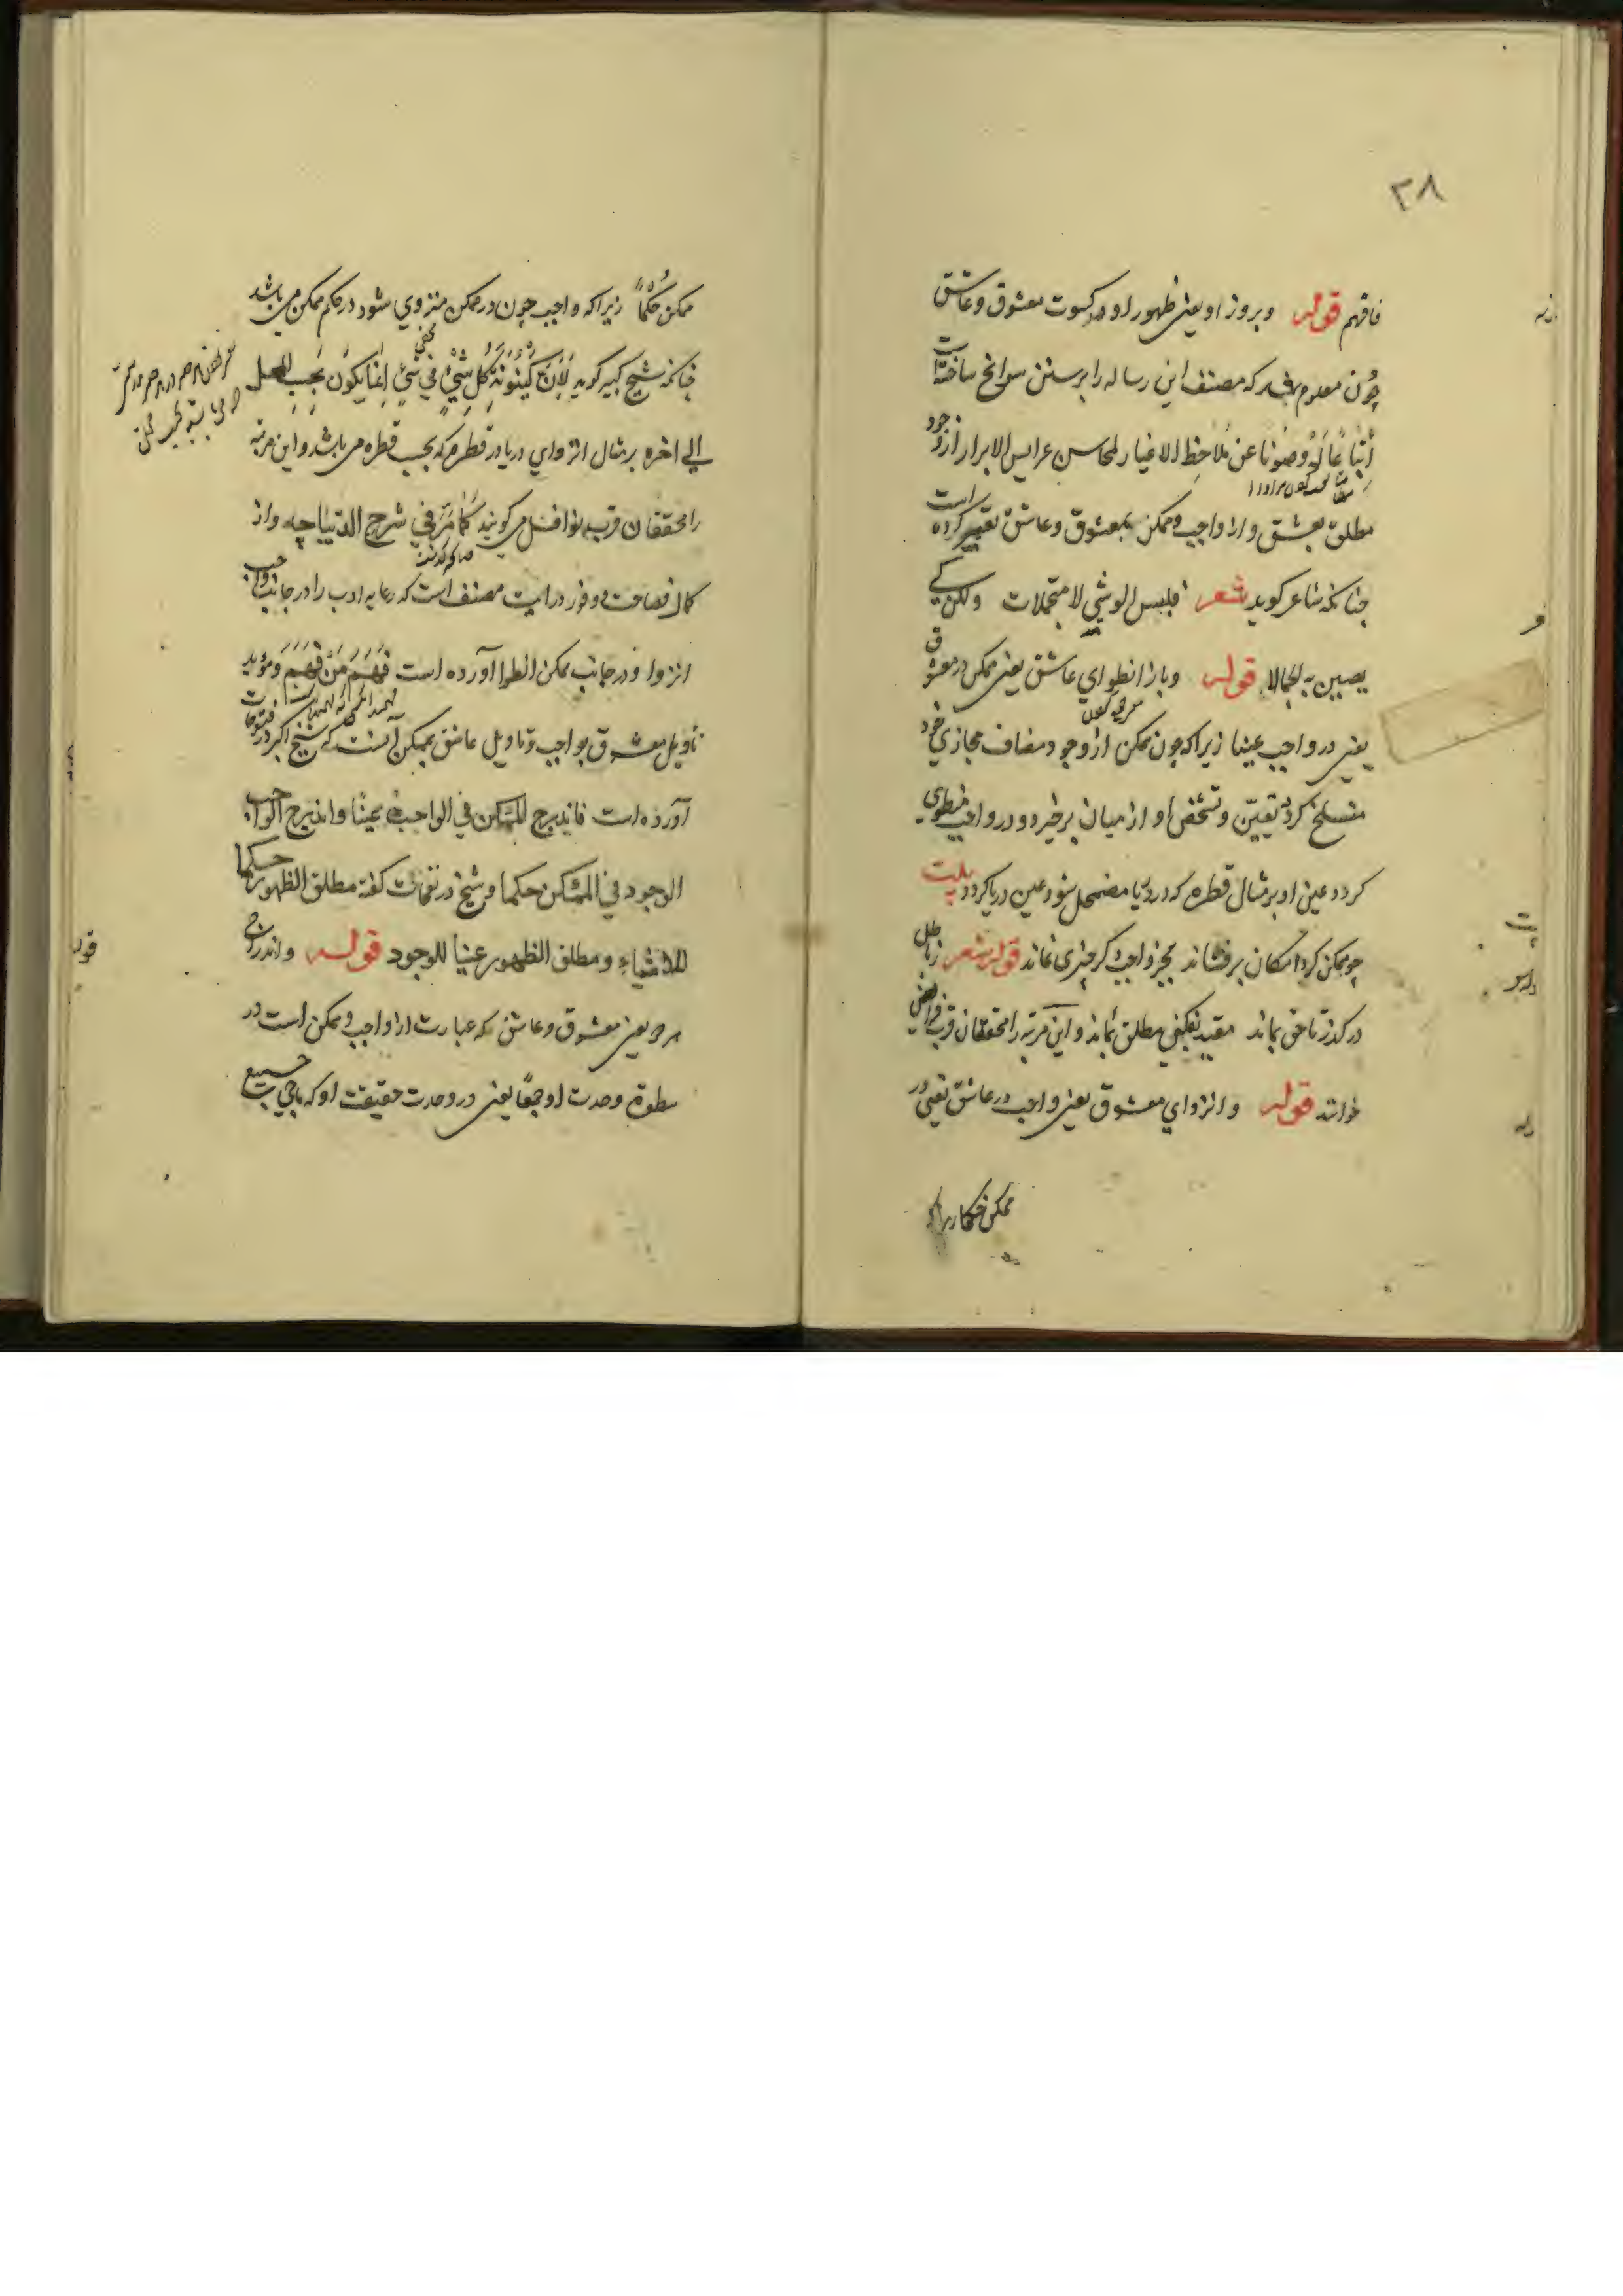 ۲۸
فافهم قوله وبروز او یعنی ظهور او در کسوت معشوق وعاشق
چون معلوم شد که مصنف این رساله را بر سنن سوانح ساخته است
اتباعا له وصونا عن ملاحظ الاغیار لمحاسن عرایس الابرار از وجود
مطلق بعشق واز واجب وممکن بمعشوق وعاشق تعبیر کرده است
چنانکه شاعر گوید شعر فلبس الوشي لا متجملات ولکن کي
یصین به الجمالا قوله وباز انطوای عاشق یعنی ممکن در معشوق
یعنی در واجب عینا زیراکه چون ممکن از وجود مضاف مجازی خود
منسلخ گردد تعین وتشخص او از میان برخیزد ودر واجب منطوی
گردد عین او بر مثال قطره که در دریا مضمحل شود عین دریا گردد بیت
چو ممکن گرد امکان برفشاند بجز واجب دگر چیزی نماند قوله شعر زباطل
درگذر تا حق بماند مقید نفکنی مطلق بماند و این مرتبه را محققان قرب فرایض
خوانند قوله وانزوای معشوق یعنی واجب در عاشق یعنی در
ممکن حکما زیراکه
ممکن حکما زیراکه واجب چون در ممکن منزوی شود در حکم ممکن می باشد
چنانکه شیخ کبیر گوید لأن کینونة کل شيء في شيء إنما یکون بحسب المحل
إلی اخره بر مثال انزوای دریا در قطره که بحسب قطره می باشد و این مرتبه
را محققان قرب نوافل می گویند کما مر في شرح الدیباچه واز
کمال فصاحت ووفور درایت مصنف است که رعایه ادب را در جانب واجب
انزوا ودر جانب ممکن انطوا آورده است فهم من فهم ومؤید
تأویل معشوق بواجب وتأویل عاشق بممکن آنست که شیخ اکبر در فتوحات
آورده است فاندرج الممکن في الواجب عینا واندرج الواجب
الوجود في الممکن حکما وشیخ در نفحات گفته مطلق الظهور حکما
للاشیاء ومطلق الظهور عینا للوجود قوله واندراج
هر دو یعنی معشوق وعاشق که عبارت از واجب وممکن است در
سطوة وحدت او جمعا یعنی در وحدت حقیقت او که ماحی جمیع